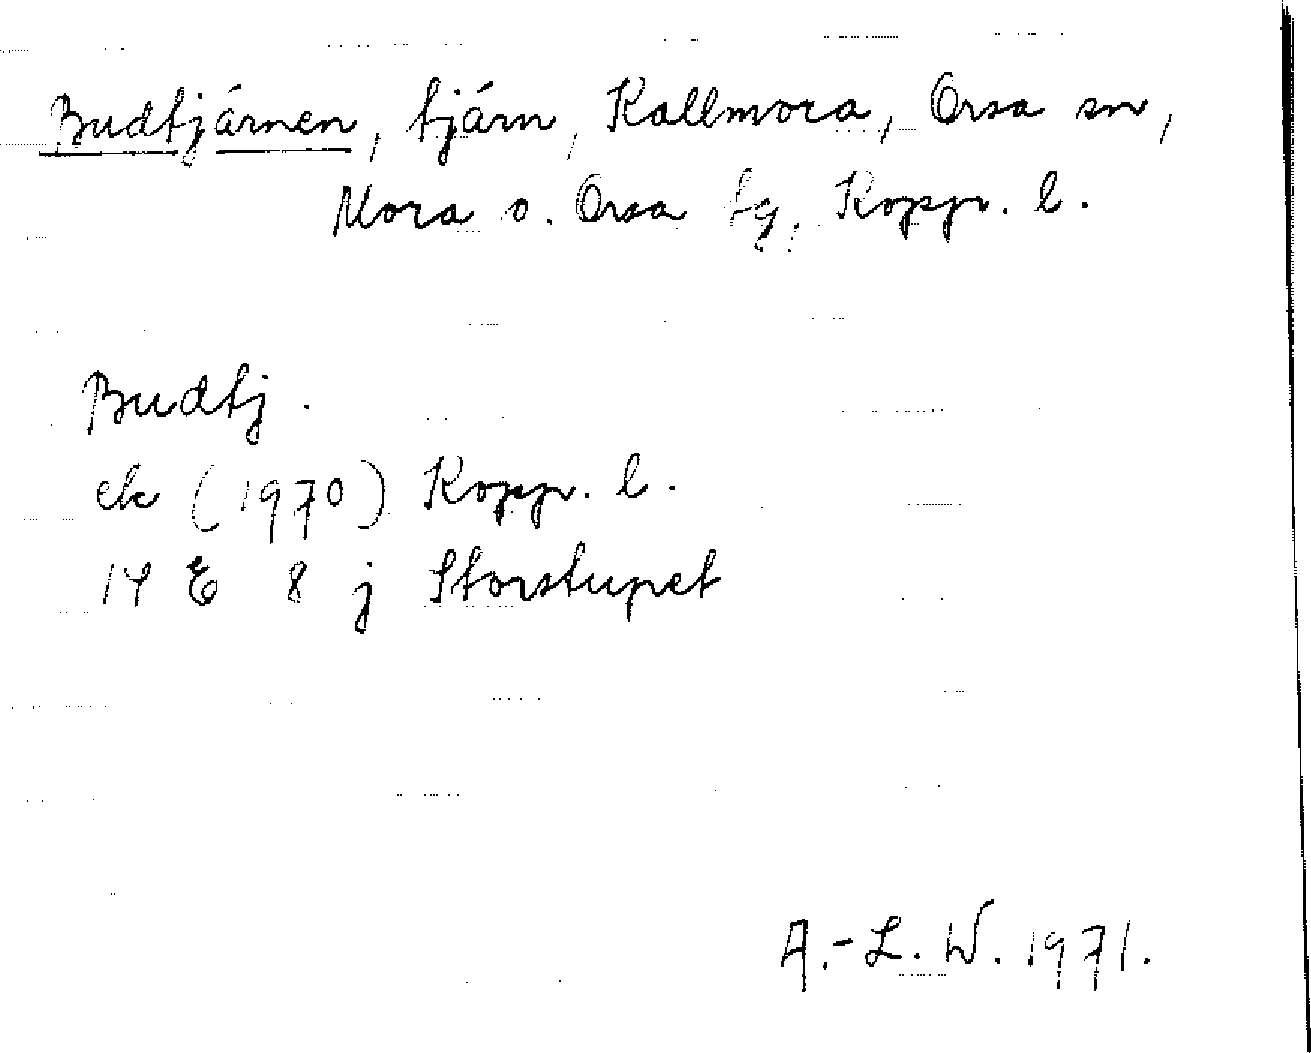 Budtjärnen, tjärn, Kallmora, Orsa sn,
Mora o. Orsa tg, Kopp. l.
Budtj.
ek (1970) Kopp. l.
14 E 8 j Storstupet
A.-L. W. 1971.